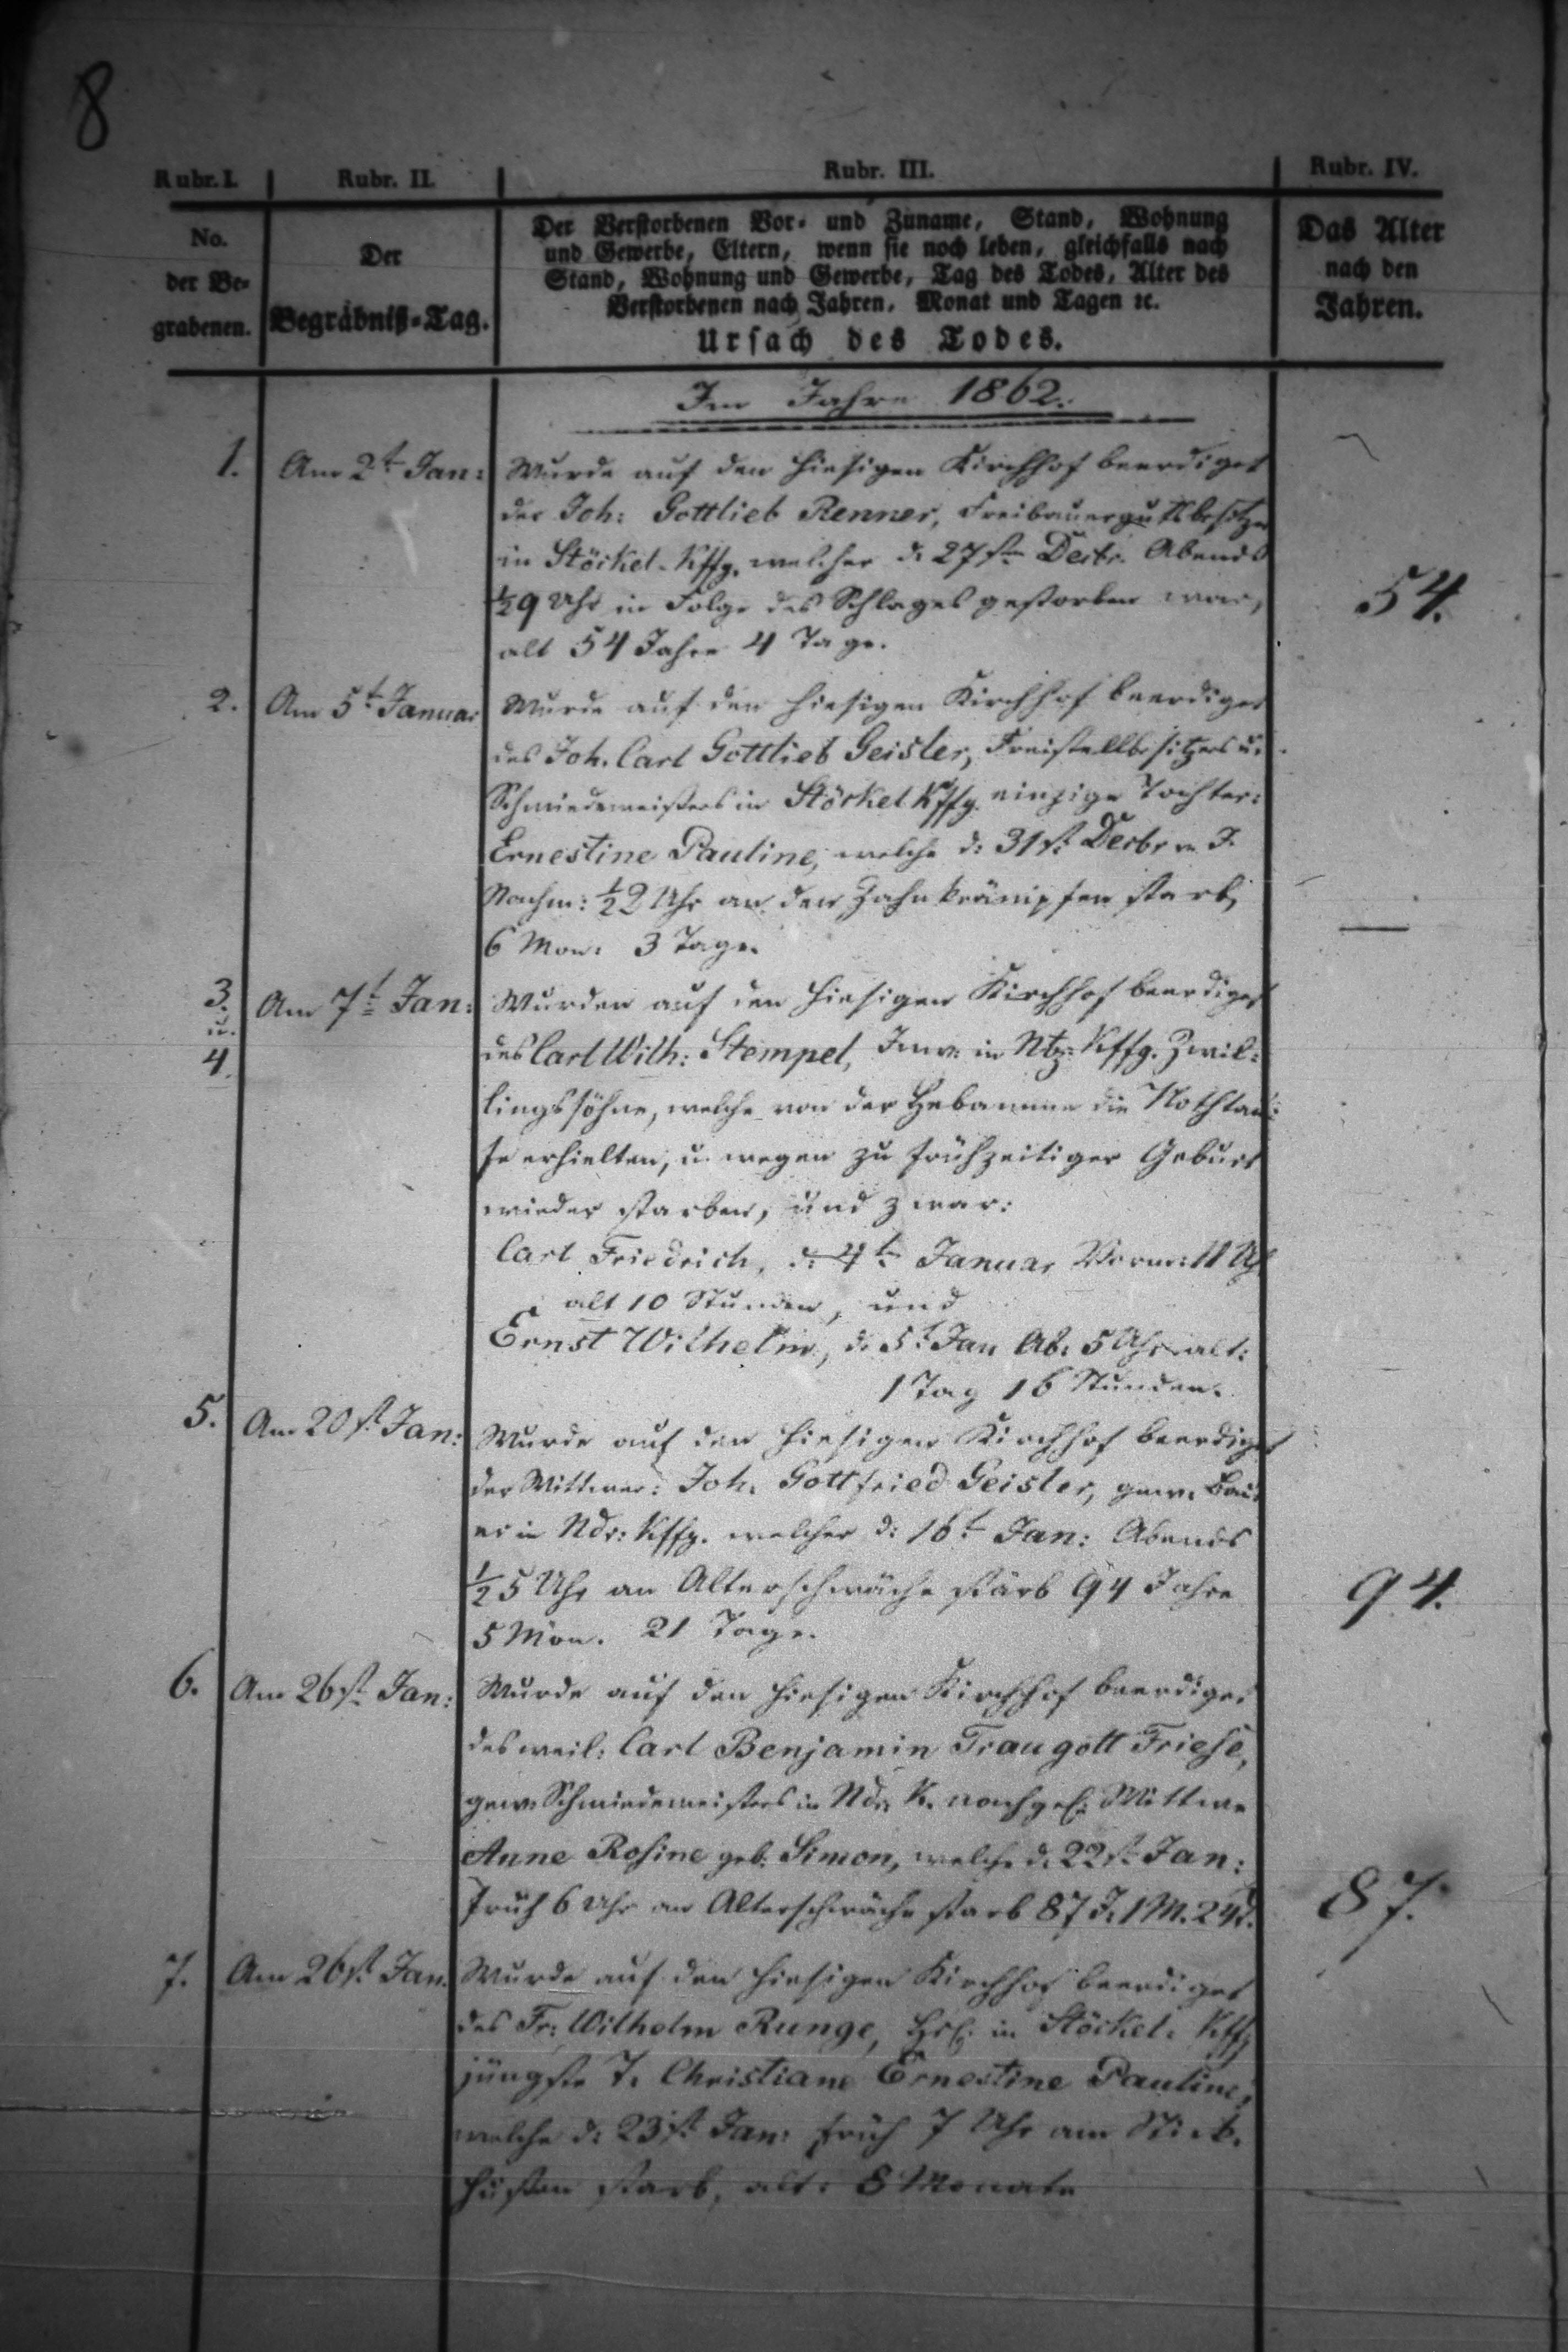 8
Rubr. I. Rubr. II. Rubr. III. Rubr. IV.
No. der Be- grabenen.
Der Begräbniß-Tag.
Der Verstorbenen Vor- und Zuname, Stand, Wohnung
und Gewerbe, Eltern, wenn sie noch leben, gleichfalls nach
Stand, Wohnung und Gewerbe, Tag des Todes, Alter des
Verstorbenen nach Jahren, Monat und Tagen ꝛc.
Ursach des Todes.
Das Alter
nach den
Jahren.
Im Jahre 1862.
1. Am 2t Jan: Wurde auf den hiesigen Kirchhof beerdiget
der Joh: Gottlieb Renner, Freibauergutsbesitzer
in Stöckel-Kffg. welcher d. 27stn Decbr. Abends
½9 Uhr in Folge des Schlages gestorben war, 54.
alt 54 Jahre 4 Tage.
2. Am 5t Januar Wurde auf den hiesigen Kirchhof beerdiget
des Joh. Carl Gottlieb Geisler, Freistellbesitzers u.
Schmiedemeisters in Stöckel Kffg. einzige Tochter:
Ernestine Pauline, welche d: 31st Decbr v. J.
Nachm: ½2 Uhr an den Zahnkrämpfen starb,
6 Mon: 3 Tage. —
3. u. 4. Am 7t Jan: Wurden auf den hiesigen Kirchhof beerdiget
des Carl Wilh: Stempel, Inw: in Kffg. Zwil-
lingssöhne, welche von der Hebamme die Nothtau-
fe erhielten, u. wegen zu frühzeitiger Geburt
wieder starben, und zwar:
Carl Friedrich, d. 4t Januar Vorm: 11 Uhr
alt 10 Stunden, und
Ernst Wilhelm, d. 5t Jan Ab. 5 Uhr alt:
1 Tag 16 Stunden.
5. Am 20st Jan: Wurde auf den hiesigen Kirchhof beerdiget
der Wittwer: Joh. Gottfried Geisler, gew. Bau-
er in Ndr: Kffg. welcher d: 16t Jan: Abends
½5 Uhr an Alterschwäche starb 94 Jahre 94.
5 Mon. 21 Tage.
6. Am 26st Jan: Wurde auf den hiesigen Kirchhof beerdiget
des weil: Carl Benjamin Traugott Friese,
gew. Schmiedemeisters in Ndr K. nachgel: Wittwe
Anne Rosine geb: Simon, welche d. 22st Jan:
Früh 6 Uhr an Alterschwäche starb 87 J. 1 M. 24 T. 87.
7. Am 26st Jan. Wurde auf den hiesigen Kirchhof beerdiget
des Fr: Wilhelm Runge, in Stöckel: Kffg
jüngste T. Christiane Ernestine Pauline,
welche d: 23st Jan: früh 7 Uhr am Stick-
husten starb, alt: 8 Monate —